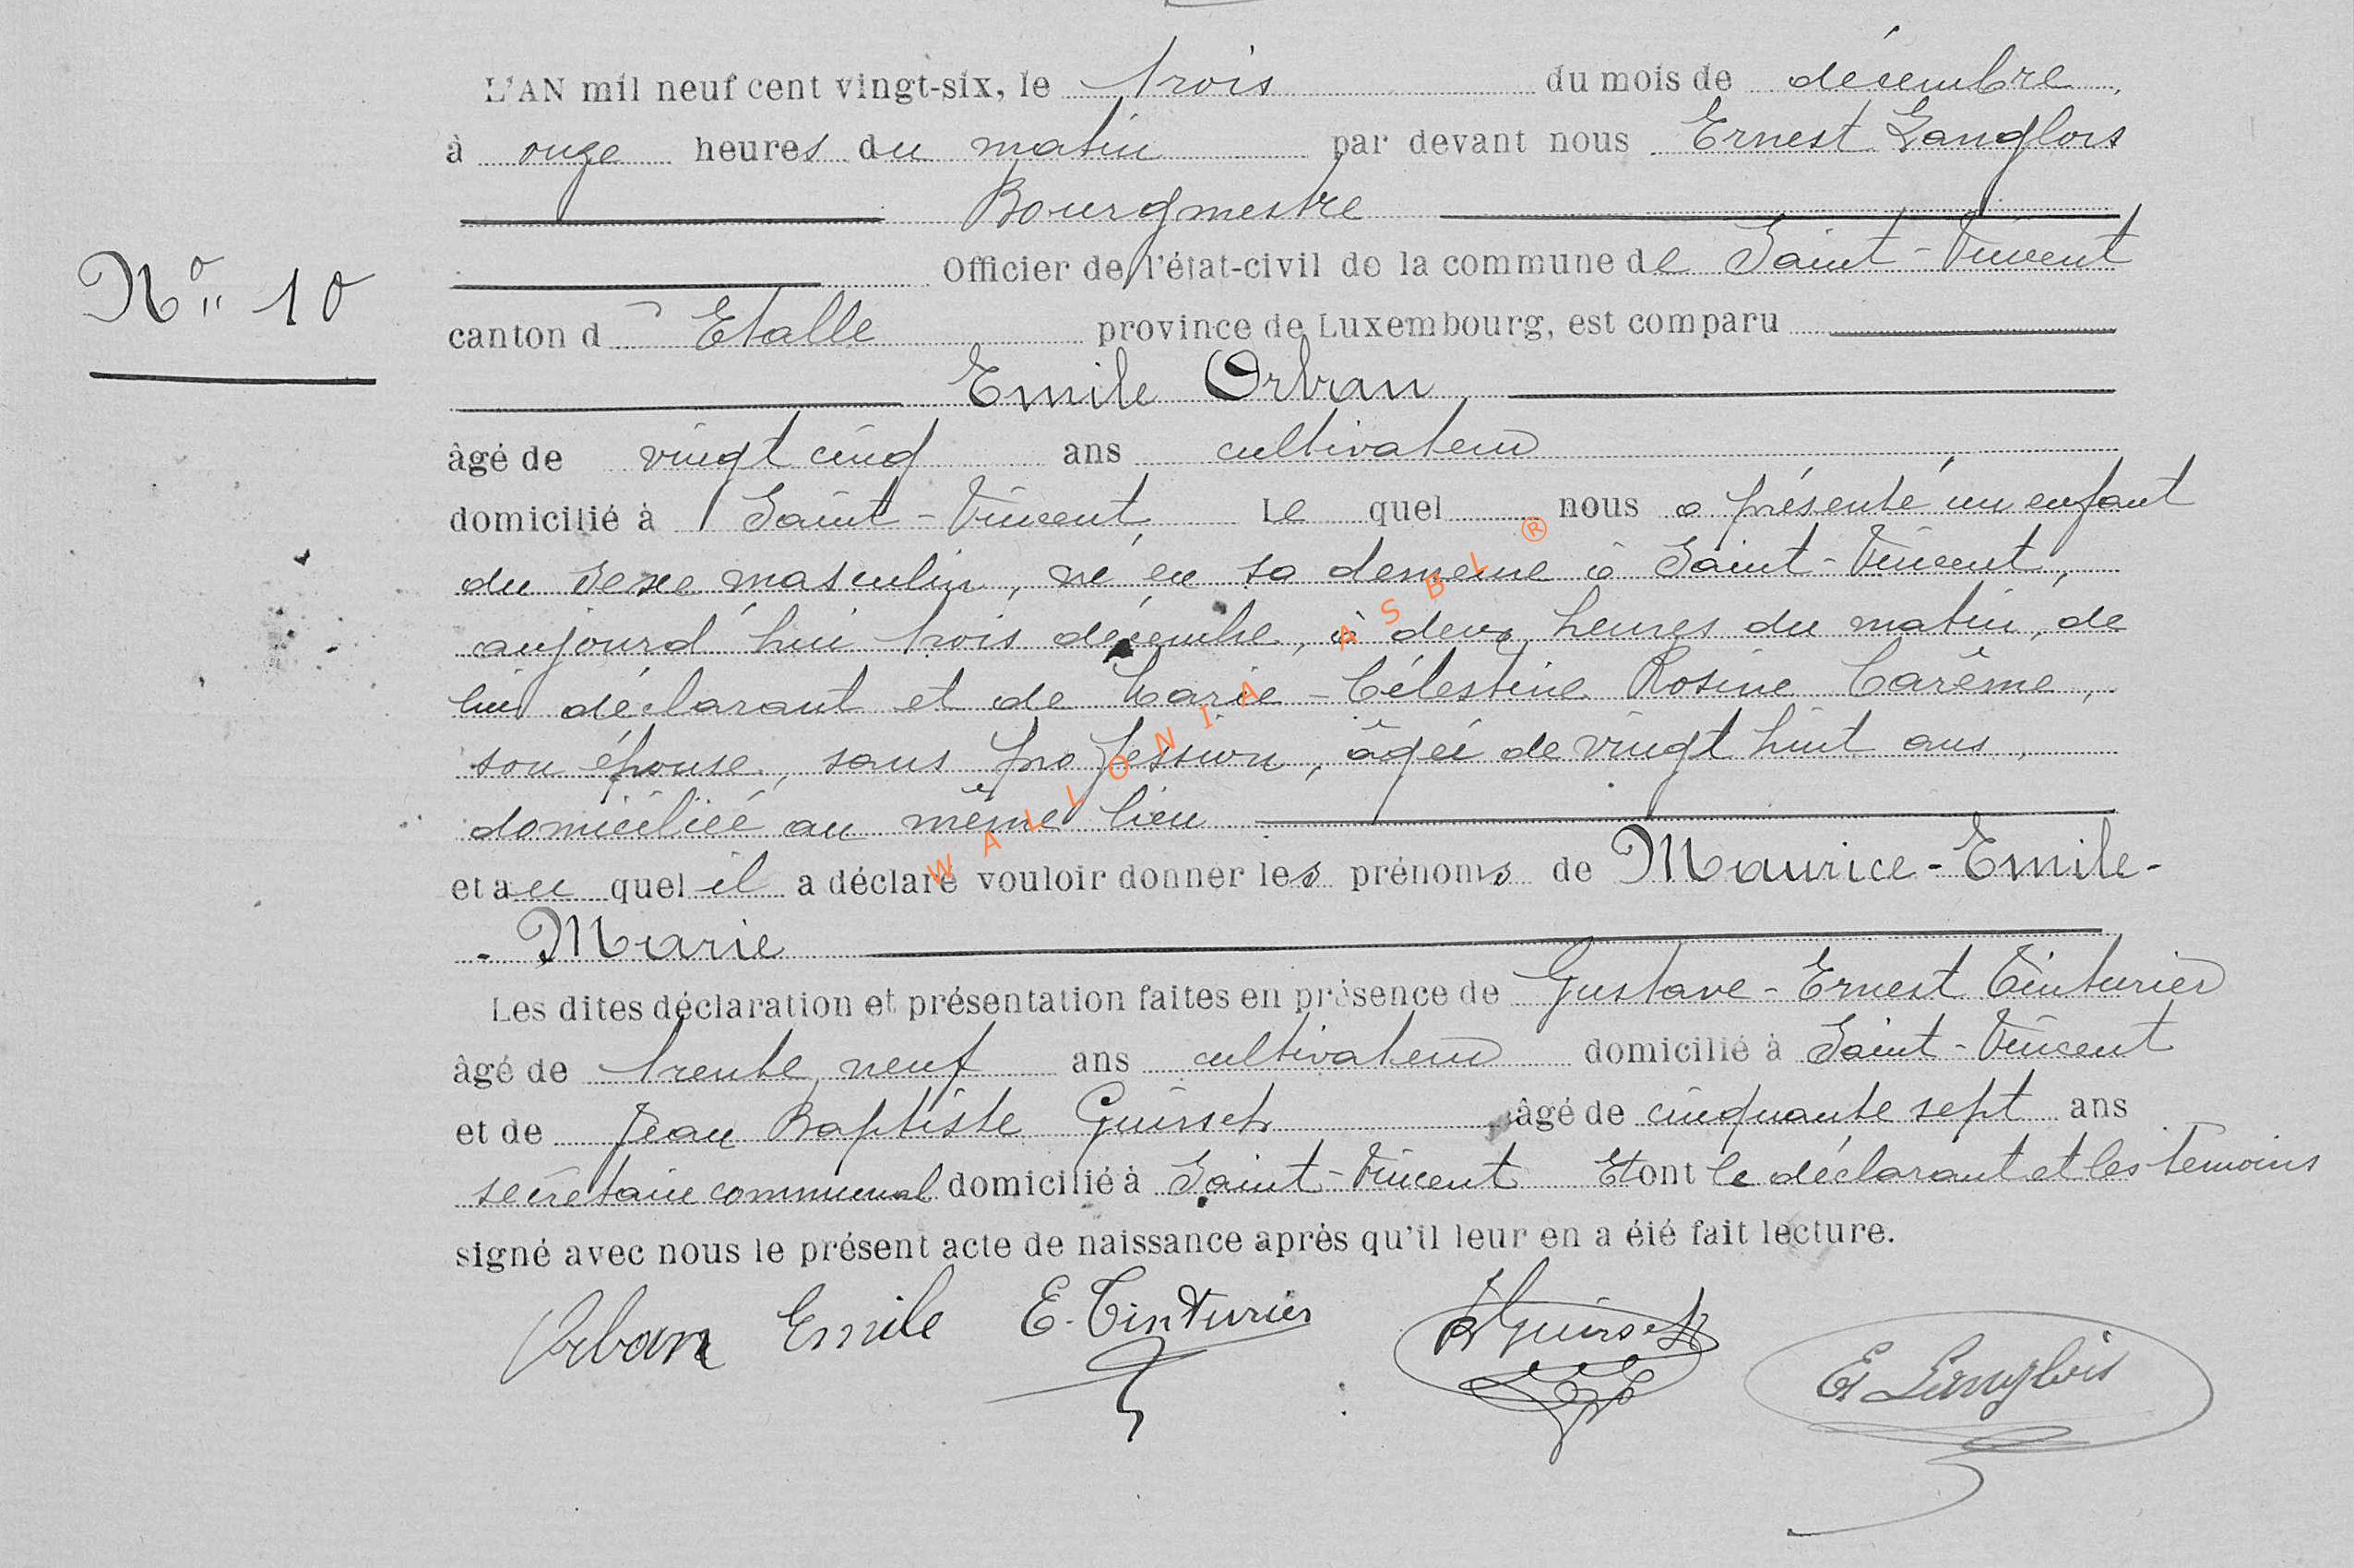 L'AN mil neuf cent vingt-six, le trois du mois de décembre,
à onze heures du matin par devant nous Ernest Langlois
Bourgmestre
Officier de l'état-civil de la commune de Saint-Vincent
N° 10
canton d'Etalle province de Luxembourg, est comparu
Emile Orban
âgé de vingt cinq ans cultivateur
domicilié à Saint-Vincent, Le quel nous a présenté un enfant
du sexe masculin, né en sa demeure à Saint-Vincent,
aujourd'hui trois décembre, à deux heures du matin, de
lui déclarant et de Marie-Célestine Rosine Carême,
son épouse, sans profession, âgée de vingt huit ans,
domiciliée au même lieu
et au quel il a déclaré vouloir donner les prénoms de Maurice-Emile-
-Marie
Les dites déclaration et présentation faites en présence de Gustave-Ernest Tinturier
âgé de trente neuf ans cultivateur domicilié à Saint-Vincent
et de Jean Baptiste Guirsch âgé de cinquante sept ans
secrétaire communal domicilié à Saint-Vincent Et ont le déclarant et les témoins
signé avec nous le présent acte de naissance après qu'il leur en a été fait lecture.
Orban Emile E. Tinturier Guirsch E Langlois
WALLONIA ASBL ®